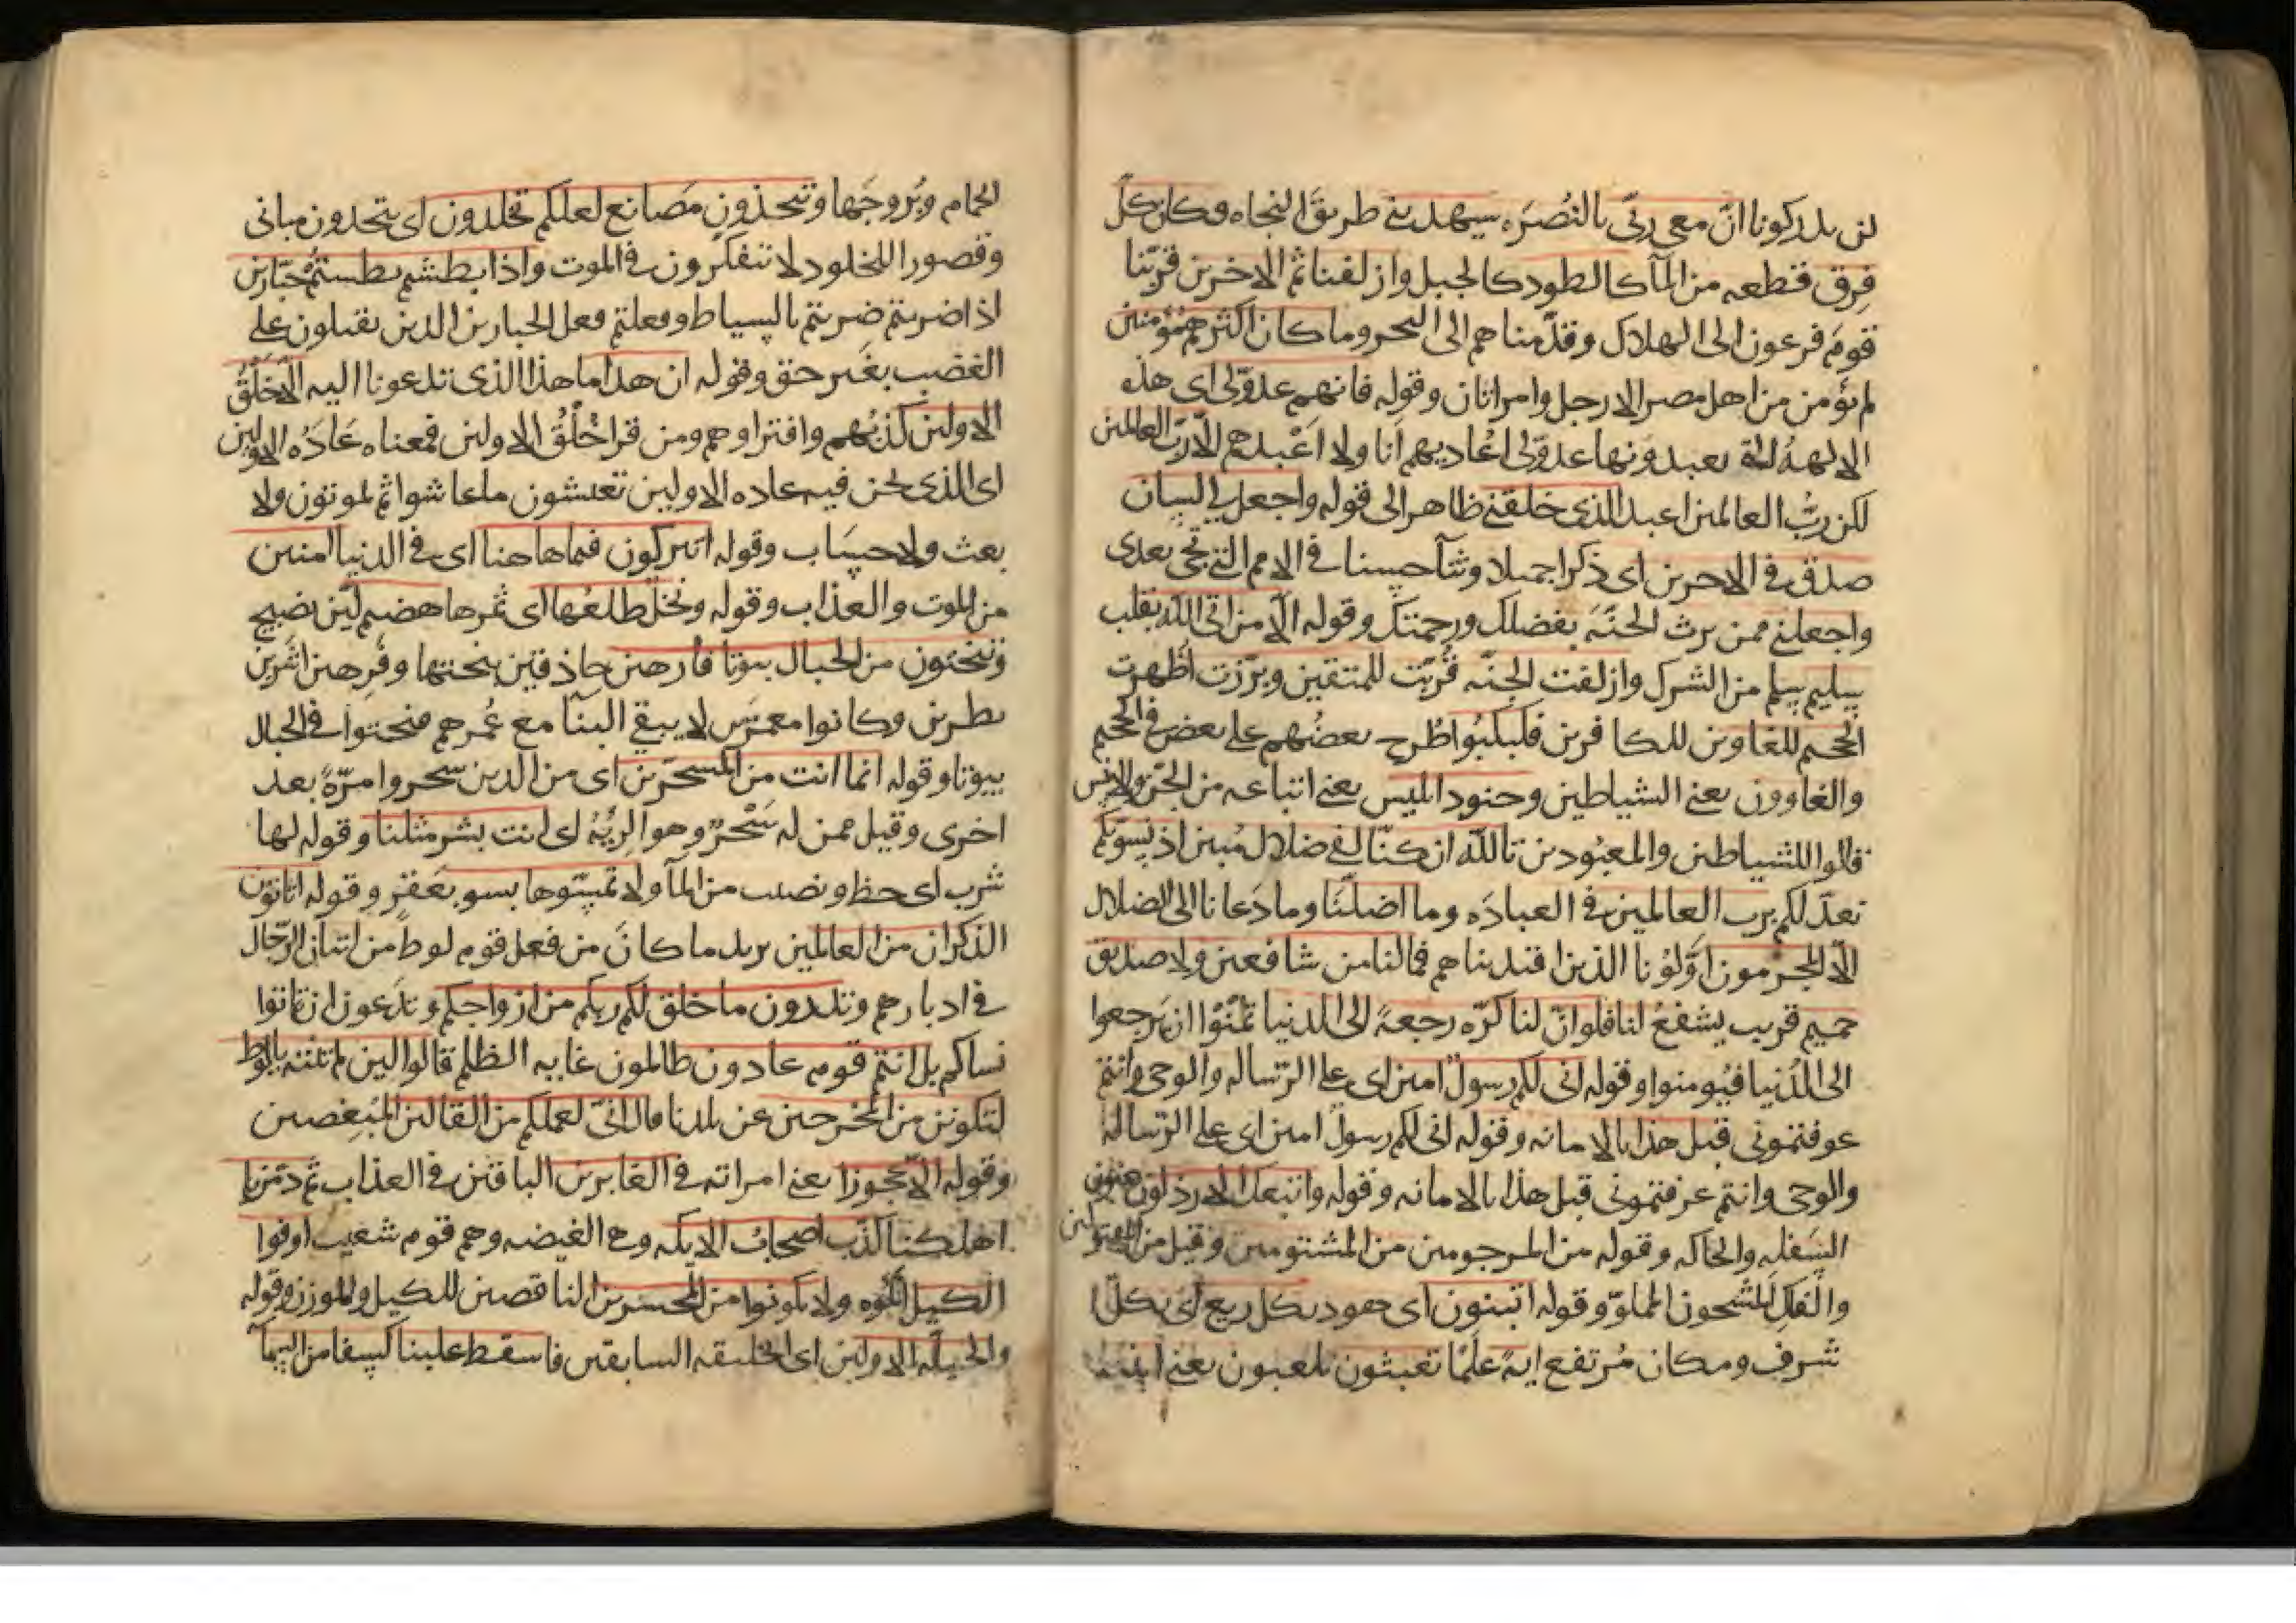 لن يدركونا انّ معى ربّى بالنُصرَه سيهدينى طريقَ النجاه وكان كلّ
فِرق قطعه من المآ كالطود كالجبل وازلفنا ثم الاخرين قرّبنا
قومَ فرعون الى الهلاك وقدّمناهم الى البحر وما كان اكثرهم مؤمنين
لم يؤمن من اهل مصر الا رجل وامراتان وقوله فانهم عدوّلى اى هذه
الالهةُ التى تعبدونها عدوّلى اعاديهم انا ولا اَعْبدهم الّا ربّ العالمين
لكن ربُّ العالمين اعبد الذى خلقنى ظاهر الى قوله واجعل لى لسان
صدق فى الاخرين اى ذكرا جميلا وثنآ حسنا فى الامم التى تجى بعدى
واجعلنى ممن يرث الجنّهَ بفضلك ورحمتك وقوله الّا من اتى اللّه بقلب
سليم سلم من الشرك وازلفت الجنّه قُربّت للمتقين وبرّزت اظهرت
الجحيم للغاوين للكافرين فكبكبُوا طُرح بعضُهم على بعض فى الجحيم
والغاوون يعنى الشياطين وجنود ابليس يعنى اتباعه من الجنّ والانس
قالوا للشياطين والمعبُودين تاللّه ان كنّا لفى ضلال مُبين اذ نسوّيكم
نعدّلكم برب العالمين فى العبادَه وما اضلّنا وما دَعانا الى الضلال
الّا المجرمون اوّلوُنا الذين اقتديناهم فما لنا من شافعين ولا صديق
حميم قريب يشفعُ لنا فلو انّ لنا كرّه رجعةً الى الدنيا تمنّوا ان يَرجعوا
الى الدُنيا فيُومنوا وقوله انى لكم رسولٌ امين اى على الرّساله والوحى وانتم
عرفتمونى قبل هذا بالامانه وقوله انى لكم رسول امين اى على الرّسالة
والوحى وانتم عرفتمونى قبل هذا بالامانه وقوله واتبعك الارذلون يعنون
السَفله والحاكه وقوله من المرجومين من المشتومين وقيل من المقتولين
والفلك المشحون المملوّ وقوله اتبنون اى هود بكل ريع اى بكلّ
شرف ومكان مُرتفع ايةً علَمًا تعبثون تلعبون يعنى ابنيه
الحمام وبُروجَها وتتخذون مَصانع لعلكم تخلدون اى تتخذون مبانى
وقصورا للخلود لا تتفكّرون فى الموت واذا بطشتم بطشتُم جبّارين
اذا ضربتم ضربتم بالسياط وفعلتم فعل الجبارين الذين يقتلون على
الغضب بغير حق وقوله ان هذا ما هذا الذى تدعونا اليه الّا خَلْقُ
الاولين كذبُهم وافتراوهم ومن قرا خُلُقُ الاولين فمعناه عَادَهُ الاولين
اى الذى نحن فيه عاده الاولين تعيشون ما عاشوا ثم يموتون ولا
بعث ولا حسَاب وقوله اتتركون فيما هاهنا اى فى الدنيا امنين
من الموت والعذاب وقوله ونخل طلعُها اى ثمرها هضيم ليّن نضيج
وتنحتون من الجبال بيوتا فارهين حاذقين بنحتها وفَرِهين اشرين
بطرين وكانوا معمّرين لا يبقى البنآ مع عُمرهم فنحتوا فى الجبال
بيوتا وقوله انما انت من المسحّرين اى من الذين سحروا مرّةً بعد
اخرى وقيل ممن له سَحْرٌ وهو الرِيُّهُ اى انت بشر مثلنا وقوله لها
شرب اى حظ ونصيب من المآ ولا تمسّوها بسو بعَقر وقوله اتاتون
الذكران من العالمين يريد ما كانَ من فعل قوم لوط من اتيان الرّجال
فى ادبارهم وتذرون ما خلق لكم ربكم من ازواجكم وتدَعون ان تاتوا
نساكم بل انتم قوم عادون ظالمون غايه الظلم قالوا لين لم تنته يالوط
لتكونن من المخرجين عن بلدنا قال انّى لعملكم من القالين المُبغِضين
وقوله الّا عجوزا يعنى امراته فى الغابرين الباقين فى العذاب ثم دمّرنا
اهلكنا كذّب اصحابُ الايكه وهى الغيضه وهم قوم شعيب اوفوا
الكيل اتمّوه ولا تكونوا من المخسرين الناقصين للكيل والوزن وقوله
والجبلّه الاولين اى الخليقه السابقين فاسقط علينا كسفا من السمآ